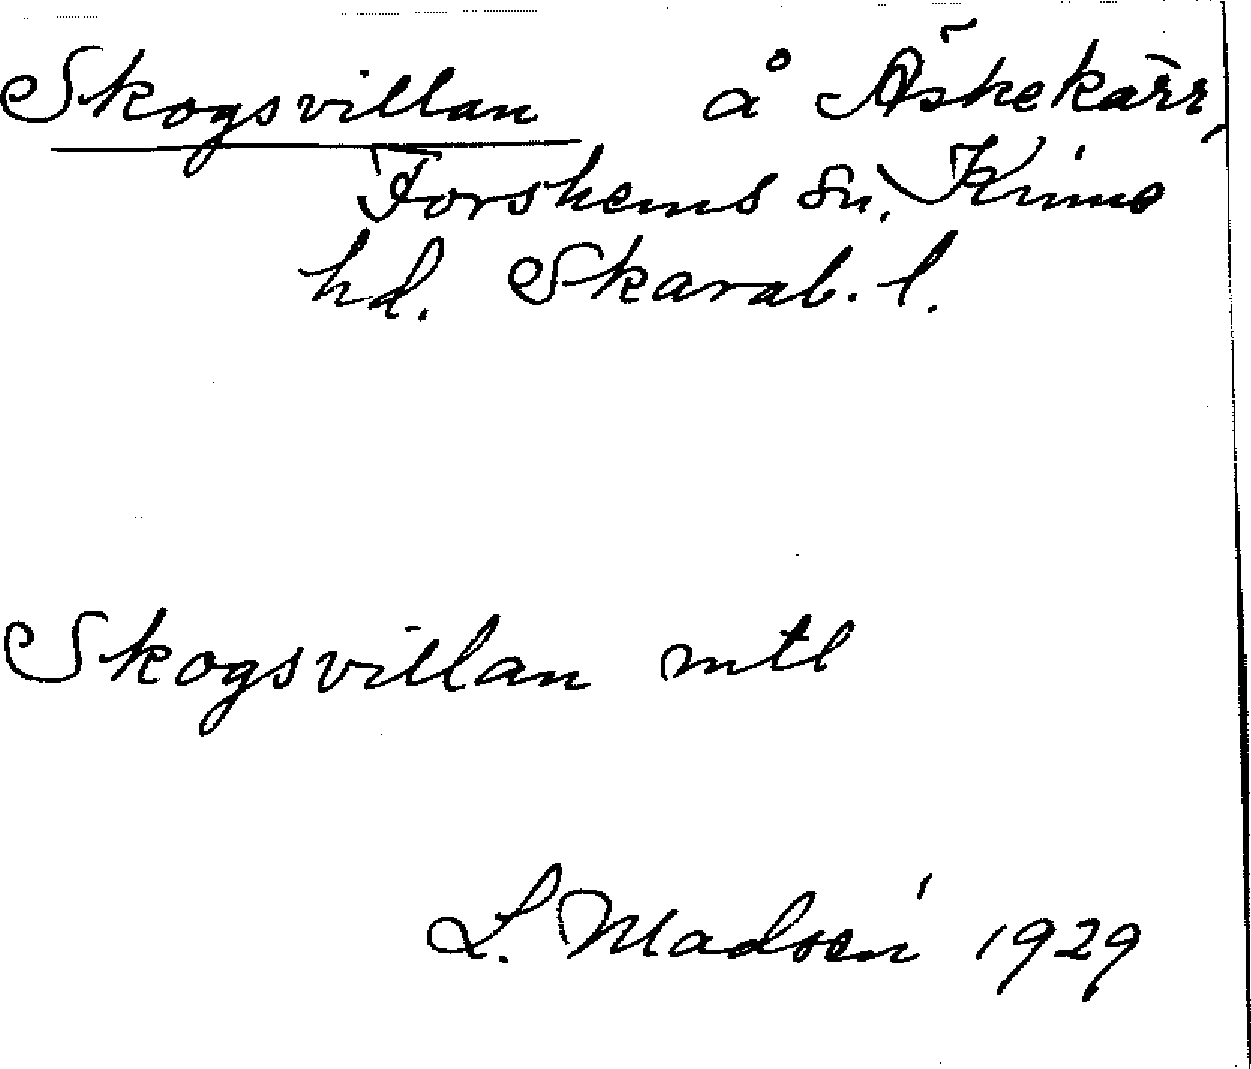 Skogsvillan å Äskekärr,
Forshems sn, Kinne
hd. Skarab. l.
Skogsvillan mtl
L. Madsén 1929